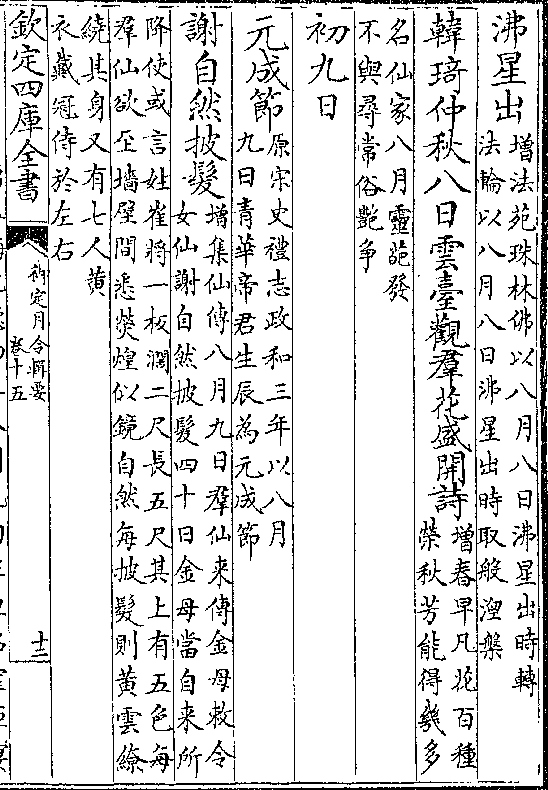 沸星出 增法苑珠林佛以八月八日沸星出時轉
法輪以八月八日沸星出時取般湼槃
韓琦仲秋八日雲臺觀羣花盛開詩 增春早凡花百種
榮秋芳能得幾多
名仙家八月靈葩發
不與尋常俗艷争
初九日
元成節 原宋史禮志政和三年以八月
九日青華帝君生辰為元成節
謝自然披髮 增集仙傳八月九日羣仙来傳金母敕令
女仙謝自然披髮四十日金母當自来所
降使或言姓崔將一板濶二尺長五尺其上有五色每
羣仙欲至墻壁間悉熒煌似鏡自然每披髮則黄雲繚
繞其身又有七人黄
衣戴冠侍於左右
欽定四庫全書
御定月令輯要
卷十五
十二